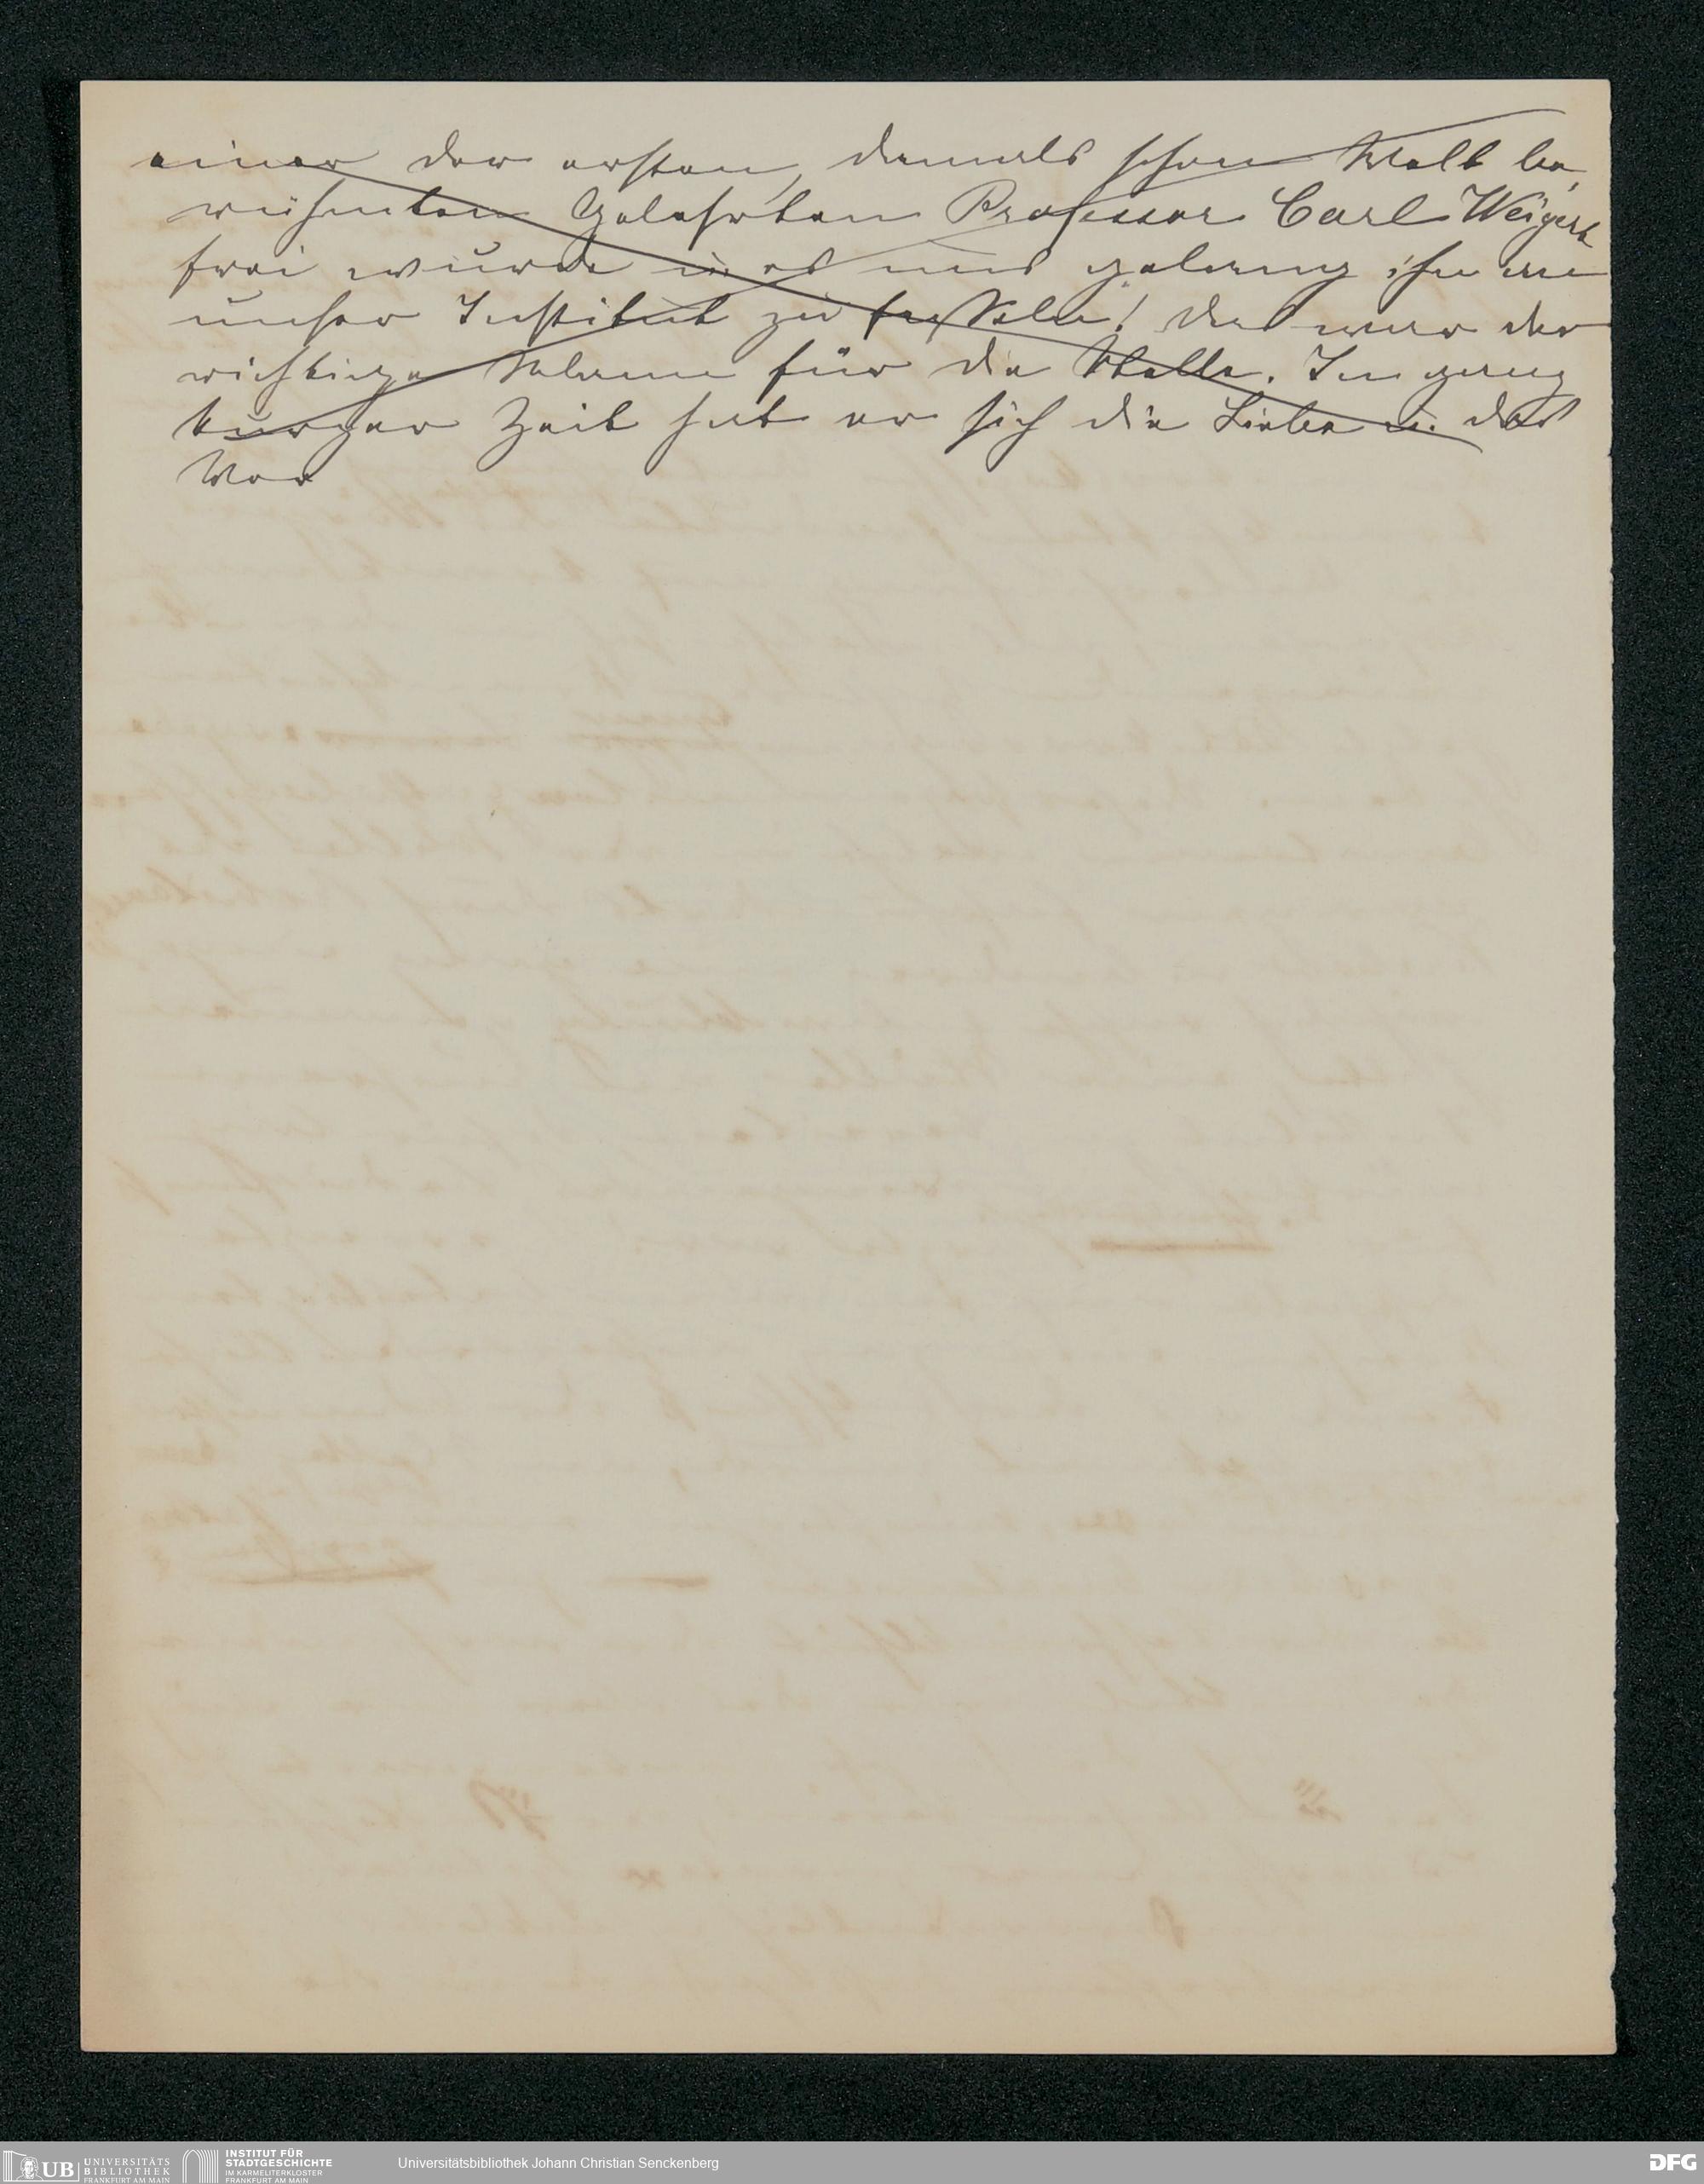 einer der ersten, damals schon Welt be,
rühmten Gelehrten Professor Carl Weigert
frei wurde u. es uns gelang ihn an
unser Institut zu fesseln! Das war der
richtige Mann für die Stelle. In ganz
kurzer Zeit hat er sich die Liebe u. das
Ver
UB
UNIVERSITÄTS
BIBLIOTHEK
FRANKFURT AM MAIN
INSTITUT FÜR
STADTGESCHICHTE
IM KARMELITERKLOSTER
FRANKFURT AM MAIN
Universitätsbibliothek Johann Christian Senckenberg
DFG